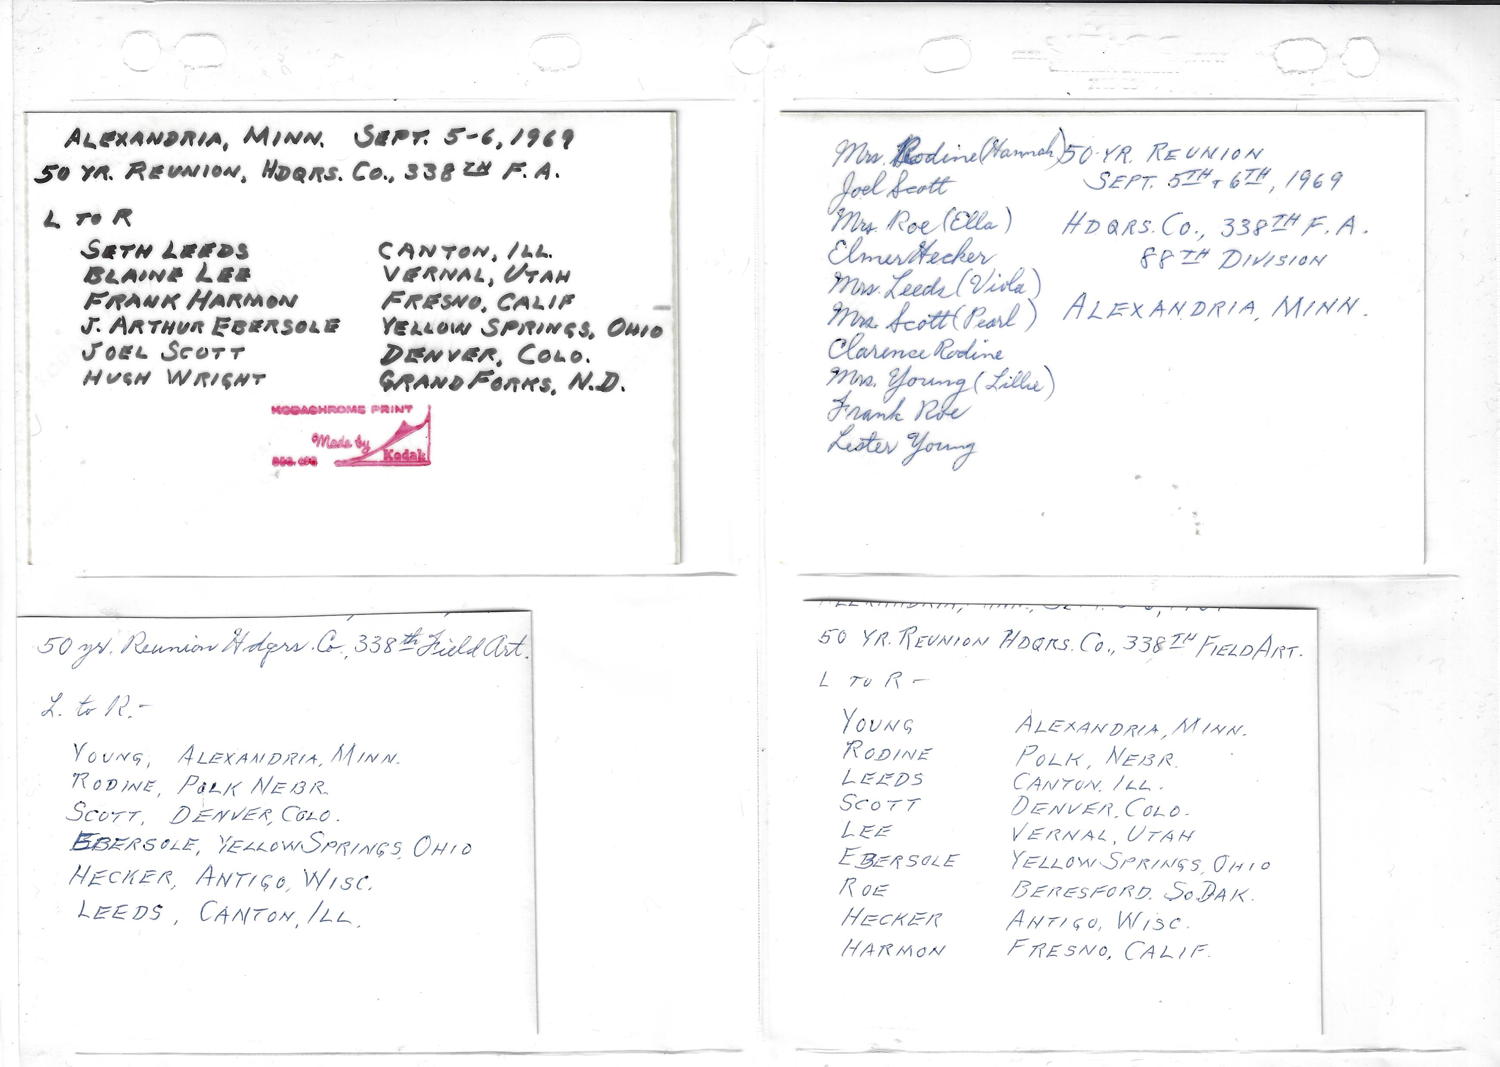 ALEXANDRIA, MINN. SEPT. 5-6, 1969
50 YR. REUNION, HDQRS. CO., 338TH F.A.
L TO R
SETH LEEDS CANTON, ILL.
BLAINE LEE VERNAL, UTAH
FRANK HARMON FRESNO, CALIF
J. ARTHUR EBERSOLE YELLOW SPRINGS, OHIO
JOEL SCOTT DENVER, COLO.
HUGH WRIGHT GRAND FORKS, N.D.
KODACHROME PRINT
Made by
Kodak
Mrs. Rodine (Hannah)
Joel Scott
Mrs. Roe (Ella)
Elmer Hecker
Mrs. Leeds (Viola)
Mrs. Scott (Pearl)
Clarence Rodine
Mrs. Young (Lillie)
Frank Roe
Lester Young
50 YR. REUNION
SEPT. 5TH + 6TH, 1969
HDQRS. CO., 338TH F.A.
88TH DIVISION
ALEXANDRIA, MINN.
50 yr. Reunion Hdqrs. Co., 338th Field Art.
L. to R.-
YOUNG, ALEXANDRIA, MINN.
RODINE, POLK NEBR.
SCOTT, DENVER, COLO.
EBERSOLE, YELLOW SPRINGS, OHIO
HECKER, ANTIGO, WISC.
LEEDS, CANTON, ILL.
50 YR. REUNION HDQRS. CO., 338TH FIELD ART.
L TO R -
YOUNG ALEXANDRIA, MINN.
RODINE POLK, NEBR.
LEEDS CANTON, ILL.
SCOTT DENVER, COLO.
LEE VERNAL, UTAH
EBERSOLE YELLOW SPRINGS, OHIO
ROE BERESFORD, SO DAK.
HECKER ANTIGO, WISC.
HARMON FRESNO, CALIF.